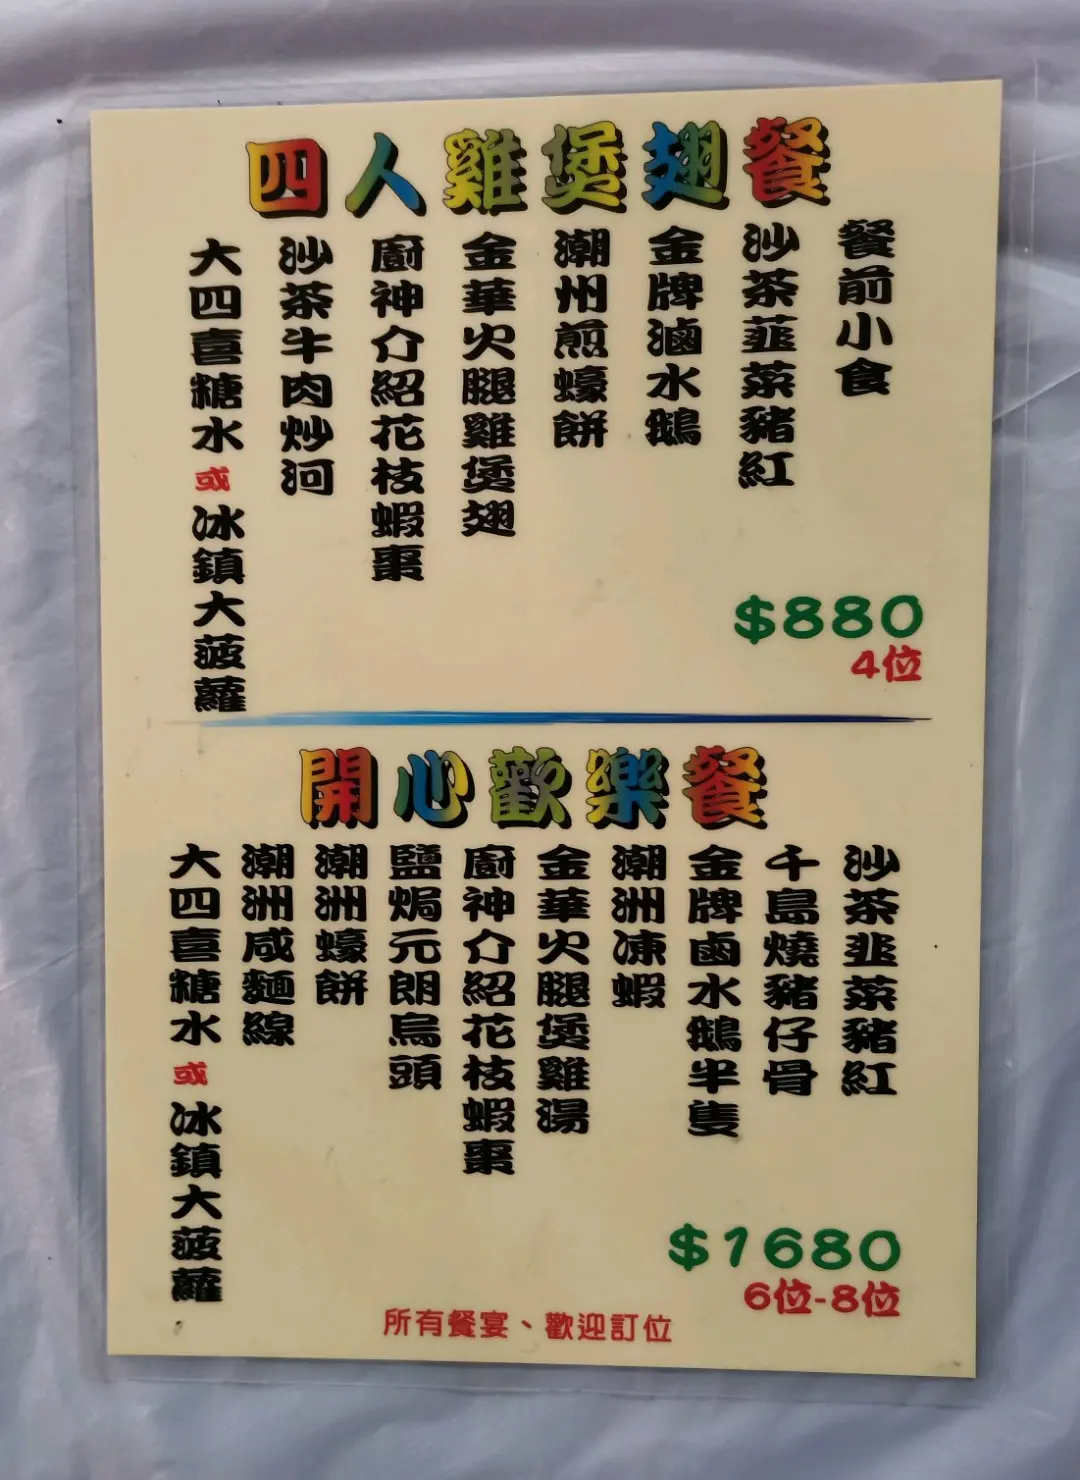 四人雞煲翅餐
餐前小食
沙茶韮菜豬紅
金牌滷水鵝
潮州煎蠔餅
金華火腿雞煲翅
廚神介紹花枝蝦棗
沙茶牛肉炒河
大四喜糖水或冰鎮大菠蘿
$880
4位
開心歡樂餐
沙茶韭菜豬紅
千島燒豬仔骨
金牌鹵水鵝半隻
潮洲凍蝦
金華火腿煲雞湯
廚神介紹花枝蝦棗
鹽焗元朗烏頭
潮洲蠔餅
潮洲咸麵線
大四喜糖水或冰鎮大菠蘿
$1680
6位-8位
所有餐宴、歡迎訂位